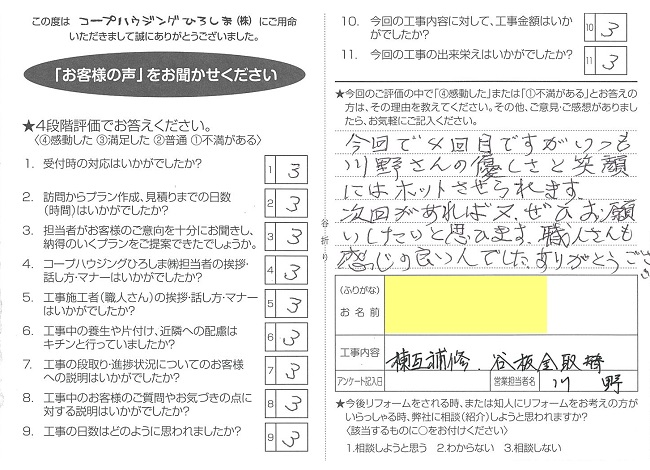 この度は コープハウジングひろしま(株) にご用命
いただきまして誠にありがとうございました。
「お客様の声」をお聞かせください
★4段階評価でお答えください。
〈④感動した ③満足した ②普通 ①不満がある〉
1. 受付時の対応はいかがでしたか? 1 3
2. 訪問からプラン作成、見積りまでの日数
(時間)はいかがでしたか? 2 3
3. 担当者がお客様のご意向を十分にお聞きし、
納得のいくプランをご提案できたでしょうか。 3 3
4. コープハウジングひろしま㈱担当者の挨拶・
話し方・マナーはいかがでしたか? 4 3
5. 工事施工者(職人さん)の挨拶・話し方・マナー
はいかがでしたか? 5 3
6. 工事中の養生や片付け、近隣への配慮は
キチンと行っていましたか? 6 3
7. 工事の段取り・進捗状況についてのお客様
への説明はいかがでしたか? 7 3
8. 工事中のお客様のご質問やお気づきの点に
対する説明はいかがでしたか? 8 3
9. 工事の日数はどのように思われましたか? 9 3
谷折り
10. 今回の工事内容に対して、工事金額はいか
がでしたか? 10 3
11. 今回の工事の出来栄えはいかがでしたか? 11 3
★今回のご評価の中で「④感動した」または「①不満がある」とお答えの
方は、その理由を教えてください。その他、ご意見・ご感想がありまし
たら、お気軽にご記入ください。
今回で4回目ですがいつも
川野さんの優しさと笑顔
にはホットさせられます。
次回があれば又、ぜひお願
いしたいと思ひます。職人さんも
感じの良い人でした。ありがとうござ
(ふりがな)
お名前
工事内容 棟瓦補修、谷板金取替
アンケート記入日 営業担当者名 川 野
★今後リフォームをされる時、または知人にリフォームをお考えの方が
いらっしゃる時、弊社に相談(紹介)しようと思われますか?
〈該当するものに○をお付けください〉
1.相談しようと思う 2.わからない 3.相談しない